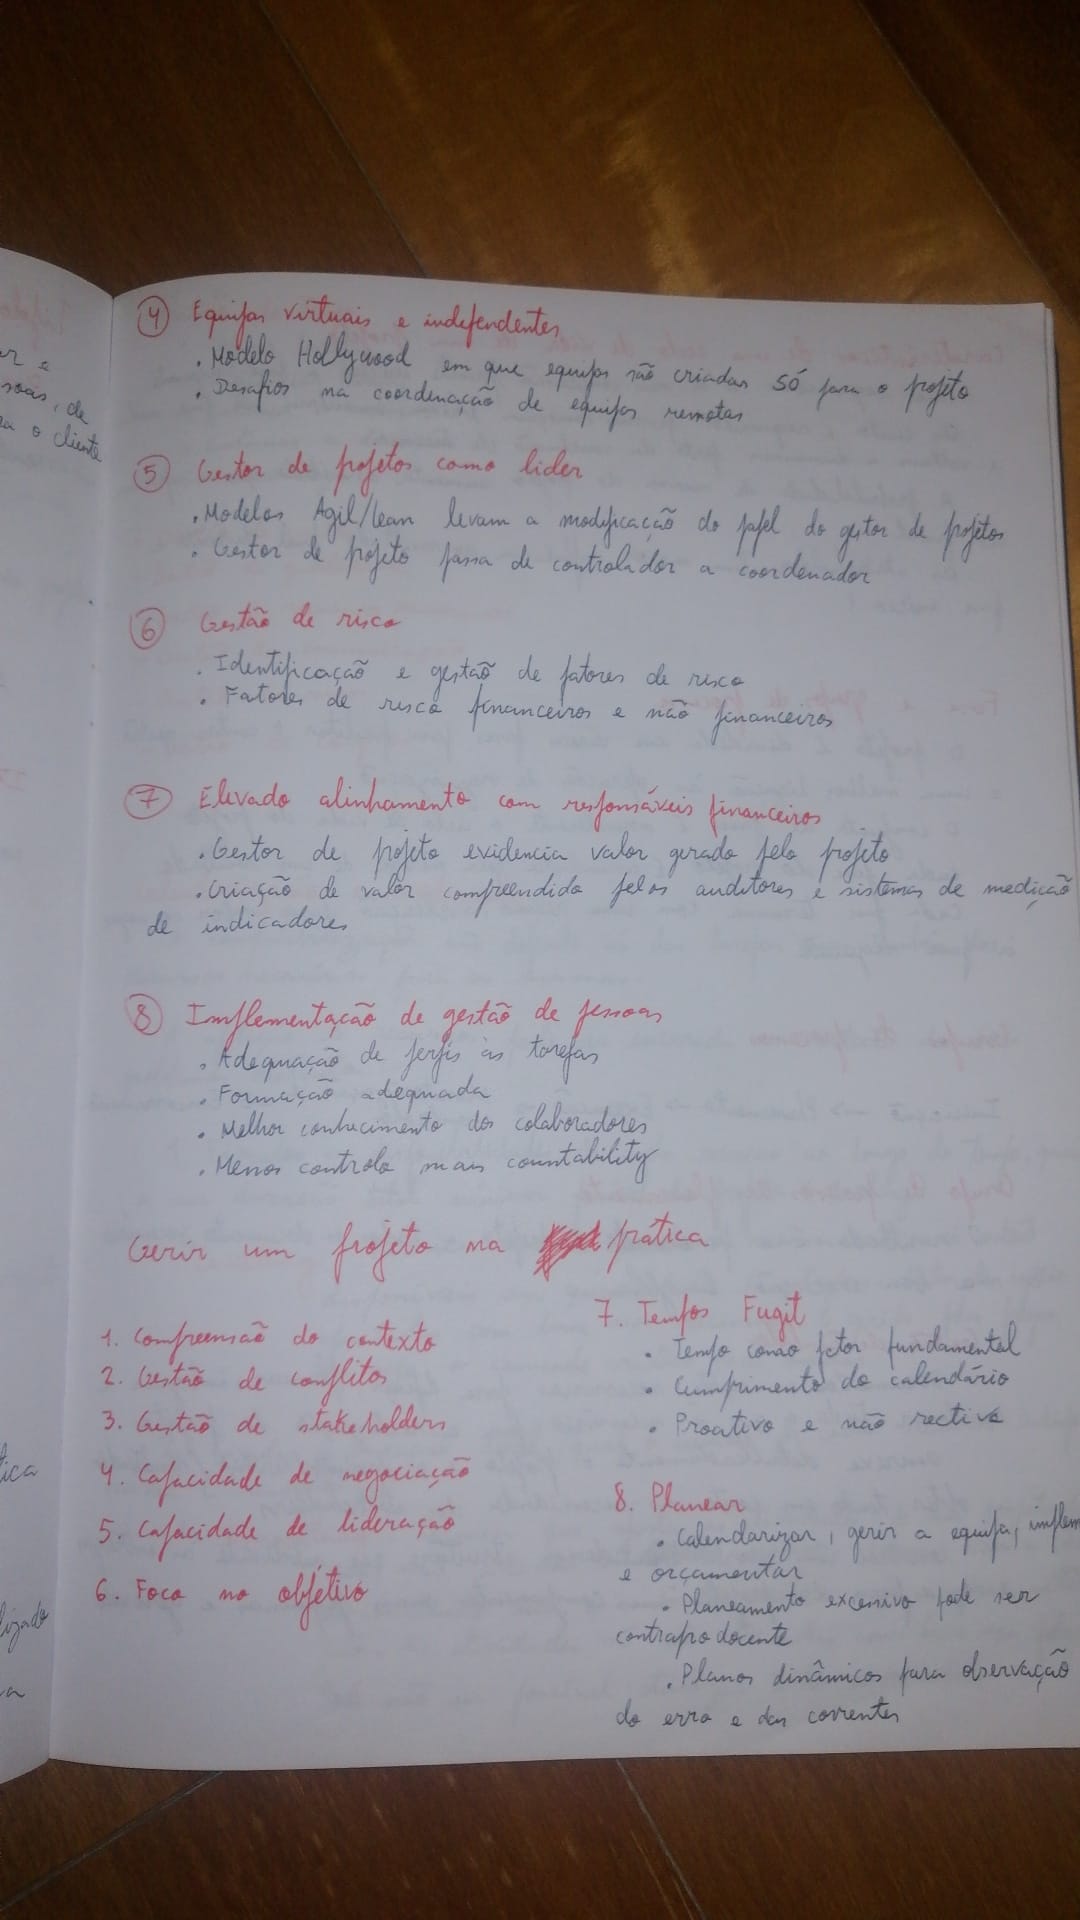 ④ Equipas virtuais e independentes
. Modelo Hollywood em que equipas são criadas só para o projeto
. Desafios na coordenação de equipas remotas
⑤ Gestor de projetos como lider
. Modelos Agil/lean levam a modificação do papel do gestor de projetos
. Gestor de projeto passa de controlador a coordenador
⑥ Gestão de risco
. Identificação e gestão de fatores de risco
. Fatores de risco financeiros e não financeiros
⑦ Elevado alinhamento com responsáveis financeiros
. Gestor de projeto evidencia valor gerado pelo projeto
. Criação de valor compreendida pelos auditores e sistemas de medição
de indicadores
⑧ Implementação de gestão de pessoas
. Adequação de perfis às tarefas
. Formação adequada
. Melhor conhecimento dos colaboradores
. Menos controlo mais countability
Gerir um projeto na prática
1. Compreensão do contexto
2. Gestão de conflitos
3. Gestão de stakeholders
4. Capacidade de negociação
5. Capacidade de lideração
6. Foco no objétivo
7. Tempos Fugit
. Tempo como fator fundamental
. Cumprimento do calendário
. Proativo e não rectivo
8. Planear
. Calendarizar, gerir a equipa, implem
e orçamentar
. Planeamento excessivo pode ser
contraprodocente
. Planos dinâmicos para observação
do erro e das correntes
er e
soas, de
o cliente
tica
lizado